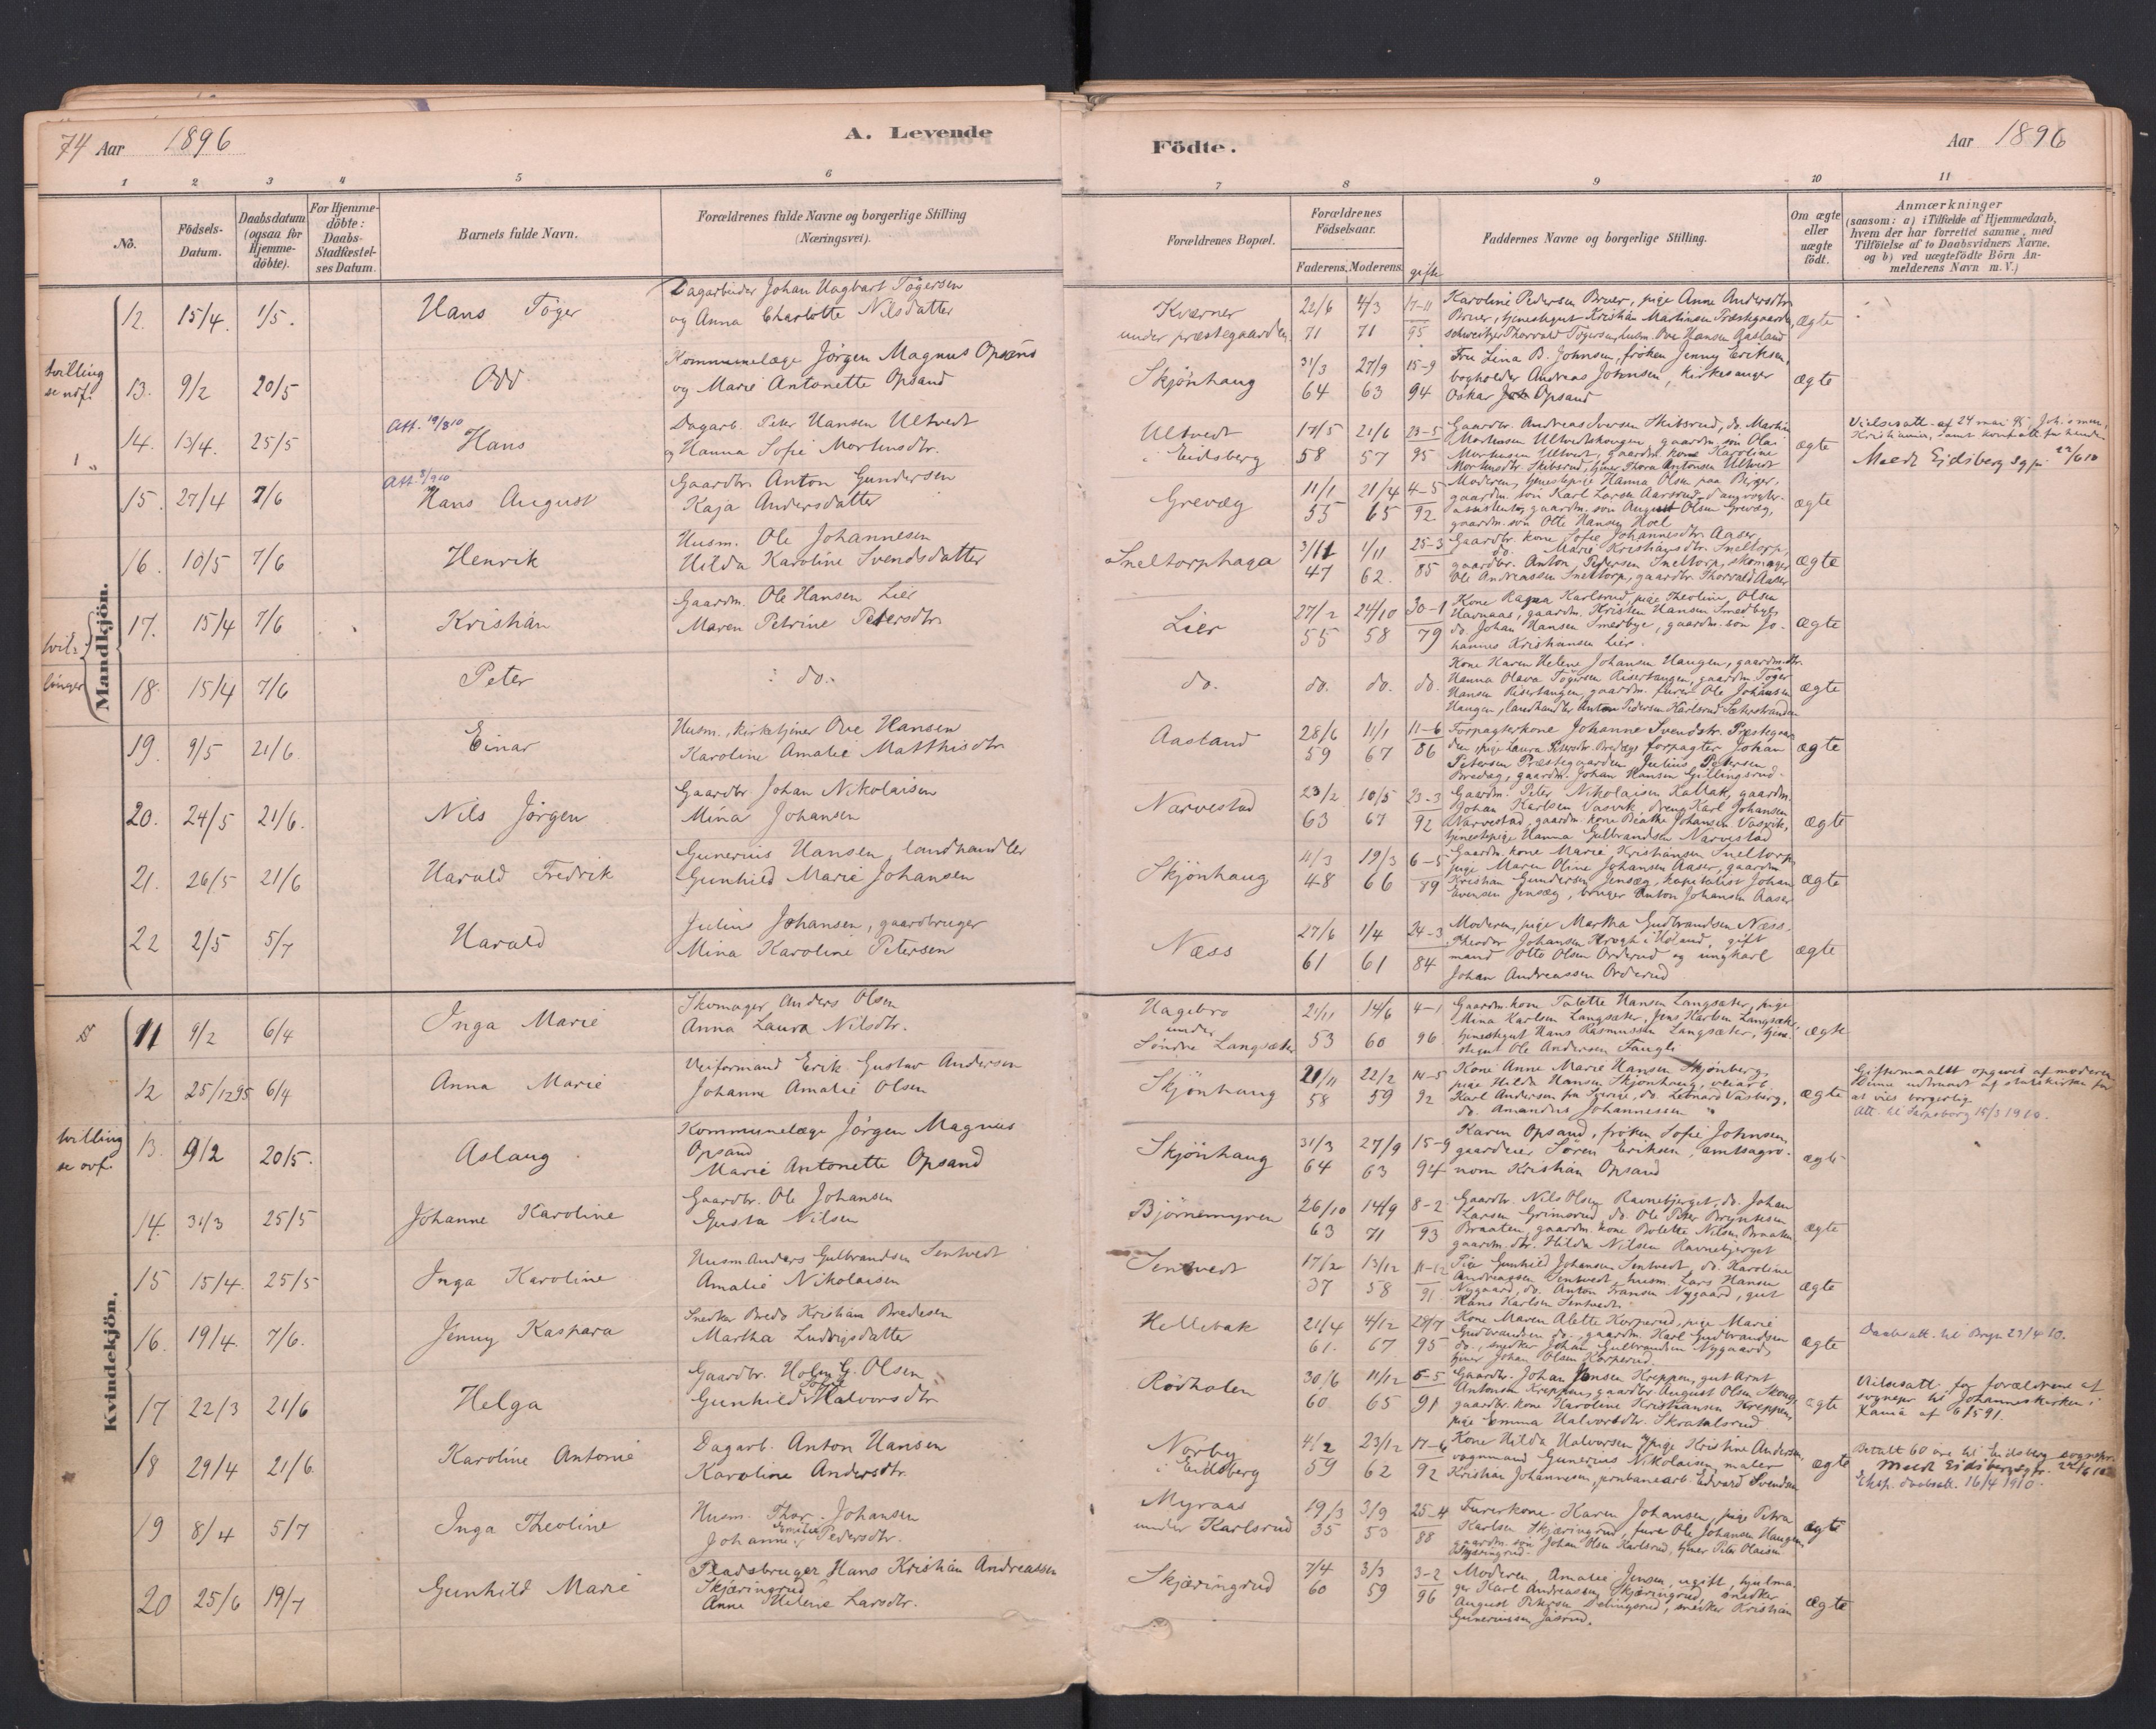 74 Aar 1896
A. Levende
Födte.
Aar 1896
1 2 3 4 5 6 7 8 9 10 11
No.
Födsels-
Datum.
Daabsdatum
(ogsaa for
Hjemme-
döbte).
For Hjemme-
döbte:
Daabs-
Stadfæstel-
ses Datum.
Barnets fulde Navn.
Forældrenes fulde Navne og borgerlige Stilling
(Næringsvei).
Forældrenes Bopæl.
Forældrenes
Födselsaar.
Faderens. Moderens. gifte
Faddernes Navne og borgerlige Stilling.
Om ægte
eller
uægte
födt.
Anmærkninger
(saasom: a) i Tilfælde af Hjemmedaab,
hvem der har forrettet samme, med
Tilföielse af to Daabsvidners Navne.
og b) ved uægtefödte Börn An-
melderens Navn m. V.)
Mandkjön.
12. 15/4. 1/5. Hans Töger
Dagarbeider Johan Hagbart Tögersen
og Anna Charlotte Nilsdatter
Kværner
under præstegaarden
22/6 71 4/3 71 17-11 95
Karoline Pedersen Bruer, pige Anne Andersdtr.
Bruer, tjenestegut Kristian Martinsen Præstegaarden,
schweitzer Thorvald Tögersen, husm. Ove Hansen Aasland
ægte
tvilling
se ndf.
13. 9/2 20/5 Odd
Kommunelæge Jörgen Magnus Opsand
og Marie Antonette Opsand
Skjönhaug
31/3 64 27/9 63 15-9 94
Fru Lina B. Johnsen, fröken Jenny Eriksen,
bogholder Andreas Johnsen, kirkesanger
Oskar Opsand
ægte
14. 13/4. 25/5 Att. 19/8 10 Hans
Dagarb. Peter Hansen Ultvedt
og Hanna Sofie Mortensdtr.
Ultvedt
i Eidsberg
17/5 58 21/6 57 23-5 95
Gaardbr. Andreas Iversen Skibsrud, do. Martin
Mortensen Ultvedtskougen, gaardm. sön Olai
Mortensen Ultvedt, gaardm. kone Karoline
Mortensdtr. Skibsrud, tjener Thora Antonsen Ultvedt
ægte
Vielsesatt. af 24 mai 95, Joh.s men.
Meldt Eidsberg sgpr. 22/6 10
15. 27/4 7/6 Hans August
Gaardbr. Anton Gundersen
Kaja Andersdatter
Grevæg
11/1 55 21/4 65 4-5 92
Moderen, tjenestepige Hanna Olsen paa Berger,
gaardm. sön Karl Larsen Aarsrud,
assistent, gaardm. sön August Olsen Grevæg,
gaardm. sön Otto Hansen Hoel
ægte
16. 10/5 7/6 Henrik
Husm. Ole Johannesen
Hilda Karoline Svendsdatter
Sneltorphaga
3/11 47 1/11 62. 25-3 85
Gaardbr. kone Sofie Johannesdtr. Aaser,
do. Marie Kristiansdtr. Sneltorp,
gaardbr. Anton Pedersen Sneltorp, skomager
Ole Andreassen Sneltorp, gaardbr. Thorvald Aaser
ægte
tvil-
linger
17. 15/4 7/6 Kristian
Gaardm. Ole Hansen Lier
Maren Petrine Petersdtr.
Lier
27/2 55 24/10 58 30-1 79
Kone Ragna Karlsrud, pige Theoline Olsen
Havnaas, gaardm. Kristen Hansen Smedbye,
do. Johan Hansen Smedbye, gaardm. sön Jo-
hannes Kristiansen Lier.
ægte
18. 15/4 7/6 Peter
do.
do. do. do. do.
Kone Karen Helene Johansen Haugen, gaardm. dtr.
Hanna Olava Tögersen Riserhaugen, gaardm. Töger
Hansen Riserhaugen, gaardm. furer Ole Johansen
Haugen, landhandler Anton Pedersen Karlsrud
ægte
19. 9/5 21/6 Einar
Husm., kirketjener Ove Hansen
Karoline Amalie Matthisdtr.
Aasland
28/6 59 11/1 67 11-6 86
Forpagterkone Johanne Svendsdtr. Præstegaar-
den, pige Laura Petersdtr. Bredag, forpagter Johan
Petersen Præstegaarden, Julius Petersen
Bredag, gaardm. Johan Hansen Gillingsrud.
ægte
20. 24/5 21/6. Nils Jörgen
Gaardbr. Johan Nikolaisen
Mina Johansen
Narvestad
23/2 63 10/5 67 23-3 92
Gaardm. Peter Nikolaisen Kallak, gaardm.
Johan Karlsen Vasvik, dreng Karl Johansen
Narvestad, gaardm. kone Beathe Johansen Vasvik,
tjenestepige Hanna Gulbrandsen Narvestad
ægte
21. 26/5 21/6 Harald Fredrik
Gunerius Hansen, landhandler
Gunhild Marie Johansen
Skjönhaug
4/3 48 19/3 66 6-5 79
Gaardm. kone Marie Kristiansen Sneltorp,
pige Maren Oline Johansen Aaser, gaardm.
Kristian Gundersen Jensæg, kapitalist Johan
Evensen Jensæg, bruger Anton Johansen Aaser
ægte
22 2/5 5/7 Harald
Julius Johansen, gaardbruger
Mina Karoline Petersen
Næss
27/6 61 1/4 61 24-3 84
Moderen, pige Martha Gudbrandsen Næss,
Theodor Johansen Krogh i Höland, gift
mand Otto Olsen Orderud og ungkarl
Johan Andreassen Orderud
ægte
Kvindekjön.
11 9/2 6/4 Inga Marie
Skomager Anders Olsen
Anna Laura Nilsdtr.
Hagebro
under
Söndre Langsæter
21/11 53 14/6 60 4-1 96
Gaardm. kone Talette Hansen Langsæter, pige
Mina Karlsen Langsæter, Jens Karlsen Langsæter,
tjenestegut Hans Rasmussen Langsæter, tjene-
stegut Ole Andersen Fangli
ægte
12 25/12 95 6/4 Anna Marie
Veiformand Erik Gustav Andersen
Johanne Amalie Olsen
Skjönhaug
21/11 58 22/2 59 14-5 92
Kone Anne Marie Hansen Skjönberg,
pige Hilda Hansen Skjönhaug, veiarb.
Karl Andersen fra Sverige, do. Leonard Vasberg,
do. Amandus Johannessen
ægte
Giftermaalet opgivet af moderen
Denne udtraadt af statskirken for
at vies borgerlig.
Att. til Sarpsborg 15/3 1910.
tvilling
se ovf.
13. 9/2 20/5. Aslaug
Kommunelæge Jörgen Magnus
Opsand
Marie Antonette Opsand
Skjönhaug
31/3 64 27/9 63 15-9 94
Karen Opsand, fröken Sofie Johnsen,
gaardeier Sören Eriksen, amtsagro-
nom Kristian Opsand
ægte
14. 31/3 25/5 Johanne Karoline
Gaardbr. Ole Johansen
Gusta Nilsen
Björnemyren
26/10 63 14/9 71 8-2 93
Gaardbr. Nils Olsen Ravnebjerget, do. Johan
Larsen Grimsrud, do. Ole Peter Bryntesen
Braaten, gaardm. kone Bolette Nilsen Braaten
gaardm. dtr. Hilda Nilsen Ravnebjerget
ægte
15 15/4. 25/5 Inga Karoline
Husm. Anders Gulbrandsen Sentvedt
Amalie Nikolaisen
Sentvedt
17/2 37 13/12 58 11-12 91
Pige Gunhild Johansen Sentvedt, do. Karoline
Andreassen Sentvedt, husm. Lars Hansen
Nygaard, do. Anton Fransen Nygaard, gut
Hans Karlsen Sentvedt
ægte
16. 19/4. 7/6. Jenny Kaspara
Snedker Brede Kristian Bredesen
Martha Ludvigsdatter
Hellebak
21/4 61. 4/12 67 28/7 95
Kone Maren Alette Korperud, pige Marie
Gudbrandsen do., gaardm. Karl Gudbrandsen
do., snedker Johan Gulbrandsen Nygaard,
tjener Johan Olsen Korperud.
ægte
Daabsatt. til Bryn 23/4 10.
17 22/3 21/6 Helga
Gaardbr. Holm G. Olsen
Gunhild Sofie Halvorsdtr.
Rödholen
30/6 60 11/12 65 5-5 91
Gaardbr. Johan Jensen Kreppen, gut Arnt
Antonsen Kreppen, gaardbr. August Olsen Skoug,
gaardbr. kone Karoline Kristiansen Kreppen,
pige Emma Halvorsdtr. Skratalsrud
ægte
Vielsesatt. for forældrene af
sognepr. til Johanneskirken i
Kania af 6/5 91.
18 29/4 21/6 Karoline Antonie
Dagarb. Anton Hansen
Karoline Andersdtr.
Norby
i Eidsberg
4/2 59 23/12 62 17-6 92
Kone Hilda Halvorsen, pige Kristine Andersen,
vognmand Gunerius Nikolaisen, maler
Kristian Johannesen, jernbanearb. Edvard Svendsen
ægte
Betalt 60 öre til Eidsberg sognepr.
Meldt Eidsberg sgpr. 22/6 10
Eksp. daabsatt. 16/4 1910.
19 8/4 5/7 Inga Theoline
Husm. Thor. Johansen
Johanne Emilie Pedersdtr.
Myraas
under Karlsrud
19/3 35 3/9 53 25-4 88
Furerkone Karen Johansen, pige Petra
Karlsen Skjæringrud, furer Ole Johansen Haugen,
gaardm. sön Johan Olsen Karlsrud, tjener Peter Olaisen
Skjæringrud.
ægte
20 25/6 19/7 Gunhild Marie
Pladsbruger Hans Kristian Andreassen
Skjæringrud
Anne Helene Larsdtr.
Skjæringrud
7/4 60 3/3 59 3-2 96
Moderen, Amalie Jensen, ugift, hjulma-
ger Karl Andreassen Skjæringrud, snedker
August Petersen, snedker Kristian
Gunerius­sen Jåsrud.
ægte